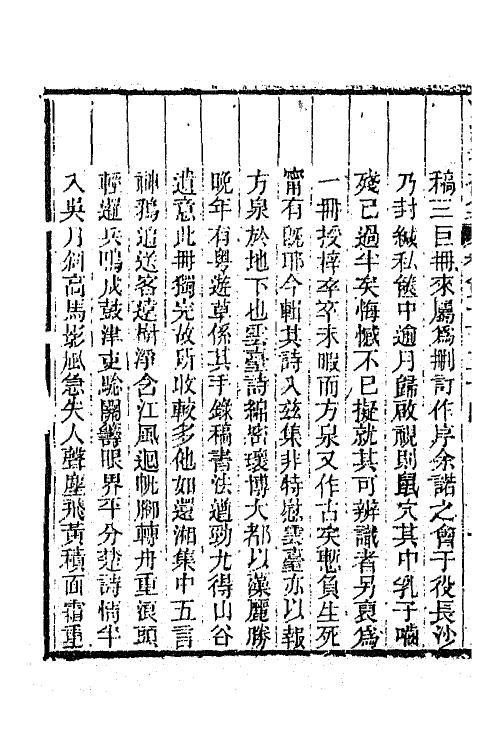 稿三巨冊來屬爲删訂作序余諾之會于役長沙
乃封緘私篋中逾月歸啟視則鼠穴其中乳子嚙
殘已過半矣悔憾不已擬就其可辨識者另裒爲
一冊授梓卒卒未暇而方泉又作古矣慙負生死
甯有旣耶今輯其詩入玆集非特慰雲臺亦以報
方泉於地下也雲臺詩綿密瓌博大都以藻麗勝
晚年有粤遊草係其手錄稿書法遒勁尤得山谷
遺意此冊獨完故所收較多他如還湘集中五言
神鴉追送客遠樹淨含江風迴帆脚轉舟重浪頭
輕邏兵鳴戍鼓津吏驗關籌眼界平分楚詩情半
入吳月斜高馬影風急失人聲塵飛黃積面霜重